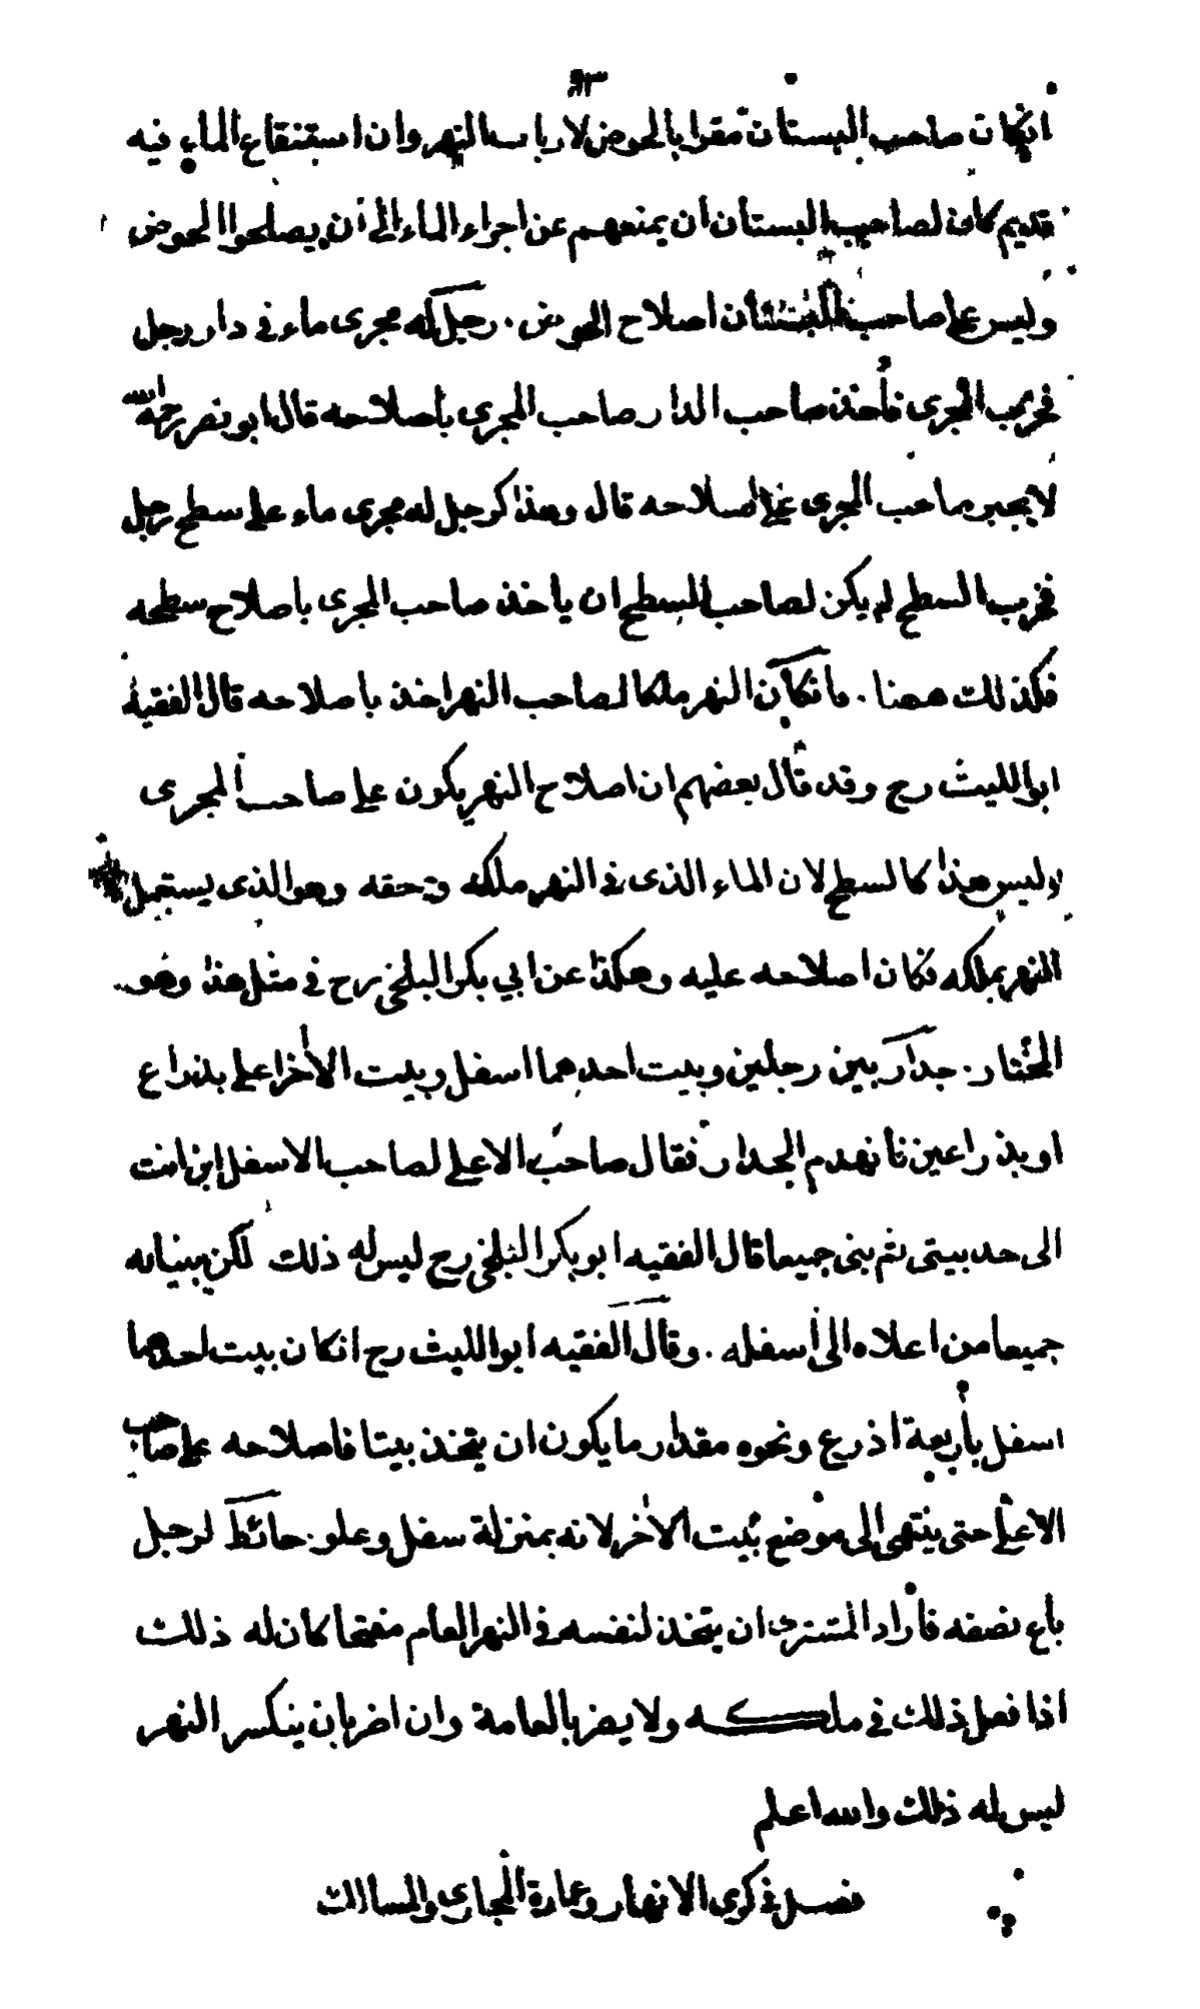 ٩٣
انكان صاحب البستان مقرا بالحوض لارباب النهر وان استنقاع الماء فيه
قديم كان لصاحب البستان ان يمنعهم عن اجراء الماء الى ان يصلحوا الحوض
وليس على صاحب البستان اصلاح الحوض . رجل له مجرى ماء في دار رجل
فخرب المجرى فأخذ صاحب الدار صاحب المجرى باصلاحه قال ابو نصر رحمه الله
لا يجبر صاحب المجرى على اصلاحه قال وهذا كرجل له مجرى ماء على سطح رجل
فخرب السطح لم يكن لصاحب السطح ان ياخذ صاحب المجرى باصلاح سطحه
فكذلك ههنا . فانكان النهر ملكا لصاحب النهر اخذ باصلاحه قال الفقيه
ابو الليث رح وقد قال بعضهم ان اصلاح النهر يكون على صاحب المجرى
وليس هذا كالسطح لان الماء الذى في النهر ملكه وحقه وهو الذى يستعمل
النهر بملكه فكان اصلاحه عليه وهكذا عن ابي بكر البلخى رح في مثل هذا وهو
المختار . جدار بين رجلين وبيت احدهما اسفل وبيت الاخر اعلى بذراع
او بذراعين فانهدم الجدار فقال صاحب الاعلى لصاحب الاسفل ابن انت
الى حد بيتى ثم بنى جميعا قال الفقيه ابو بكر البلخى رح ليس له ذلك لكن يبنيانه
جميعا من اعلاه الى أسفله . وقال الفقيه ابو الليث رح انكان بيت احدهما
اسفل بأربعة اذرع ونحوه مقدار ما يكون ان يتخذ بيتا فاصلاحه على صاحب
الاعلى حتى ينتهى الى موضع بيت الاخر لانه بمنزلة سفل وعلو . حائط لرجل
باع نصفه فأراد المشترى ان يتخذ لنفسه في النهر العام مفتحا كان له ذلك
اذا فعل ذلك في ملكه ولا يضر بالعامة وان اضر بان ينكسر النهر
ليس له ذلك والله اعلم
فصل في كرى الانهار وعمارة المجارى والمسالك